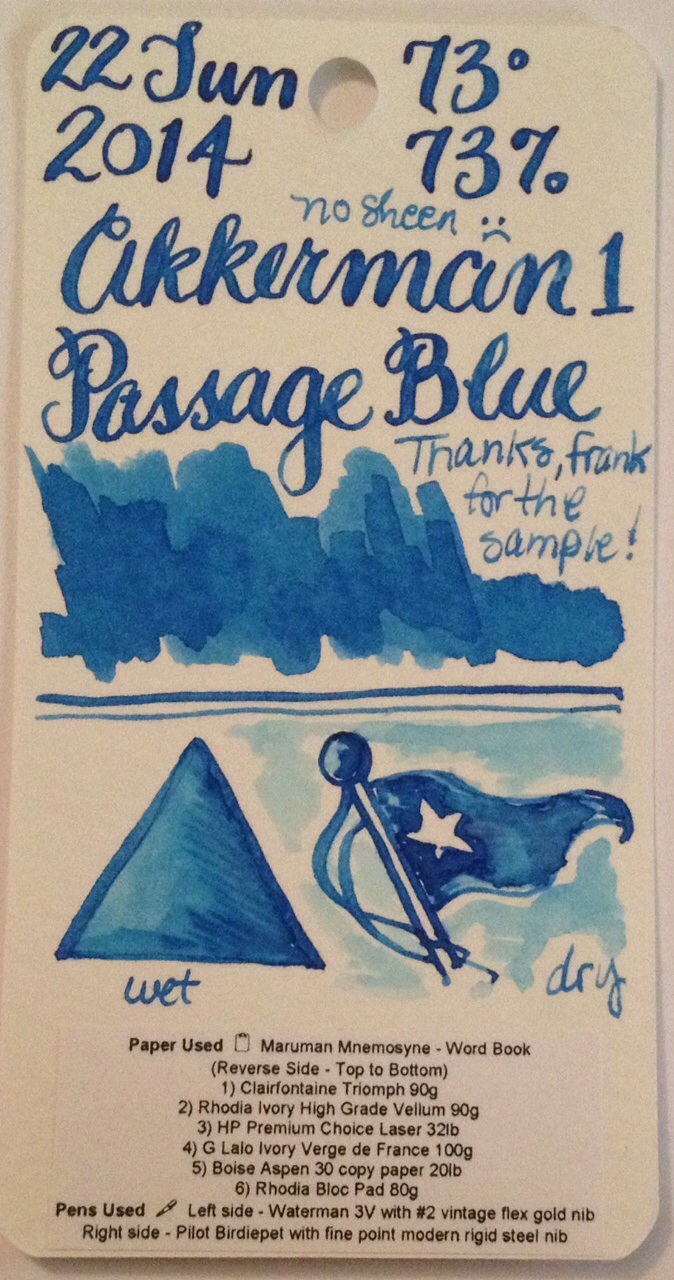 22 Jun 73°
2014 73%
no sheen :(
Akkerman 1
Passage Blue
Thanks, Frank
for the
sample!
wet
dry
Paper Used Maruman Mnemosyne - Word Book
(Reverse Side - Top to Bottom)
1) Clairfontaine Triomph 90g
2) Rhodia Ivory High Grade Vellum 90g
3) HP Premium Choice Laser 32lb
4) G Lalo Ivory Verge de France 100g
5) Boise Aspen 30 copy paper 20lb
6) Rhodia Bloc Pad 80g
Pens Used Left side - Waterman 3V with #2 vintage flex gold nib
Right side - Pilot Birdiepet with fine point modern rigid steel nib